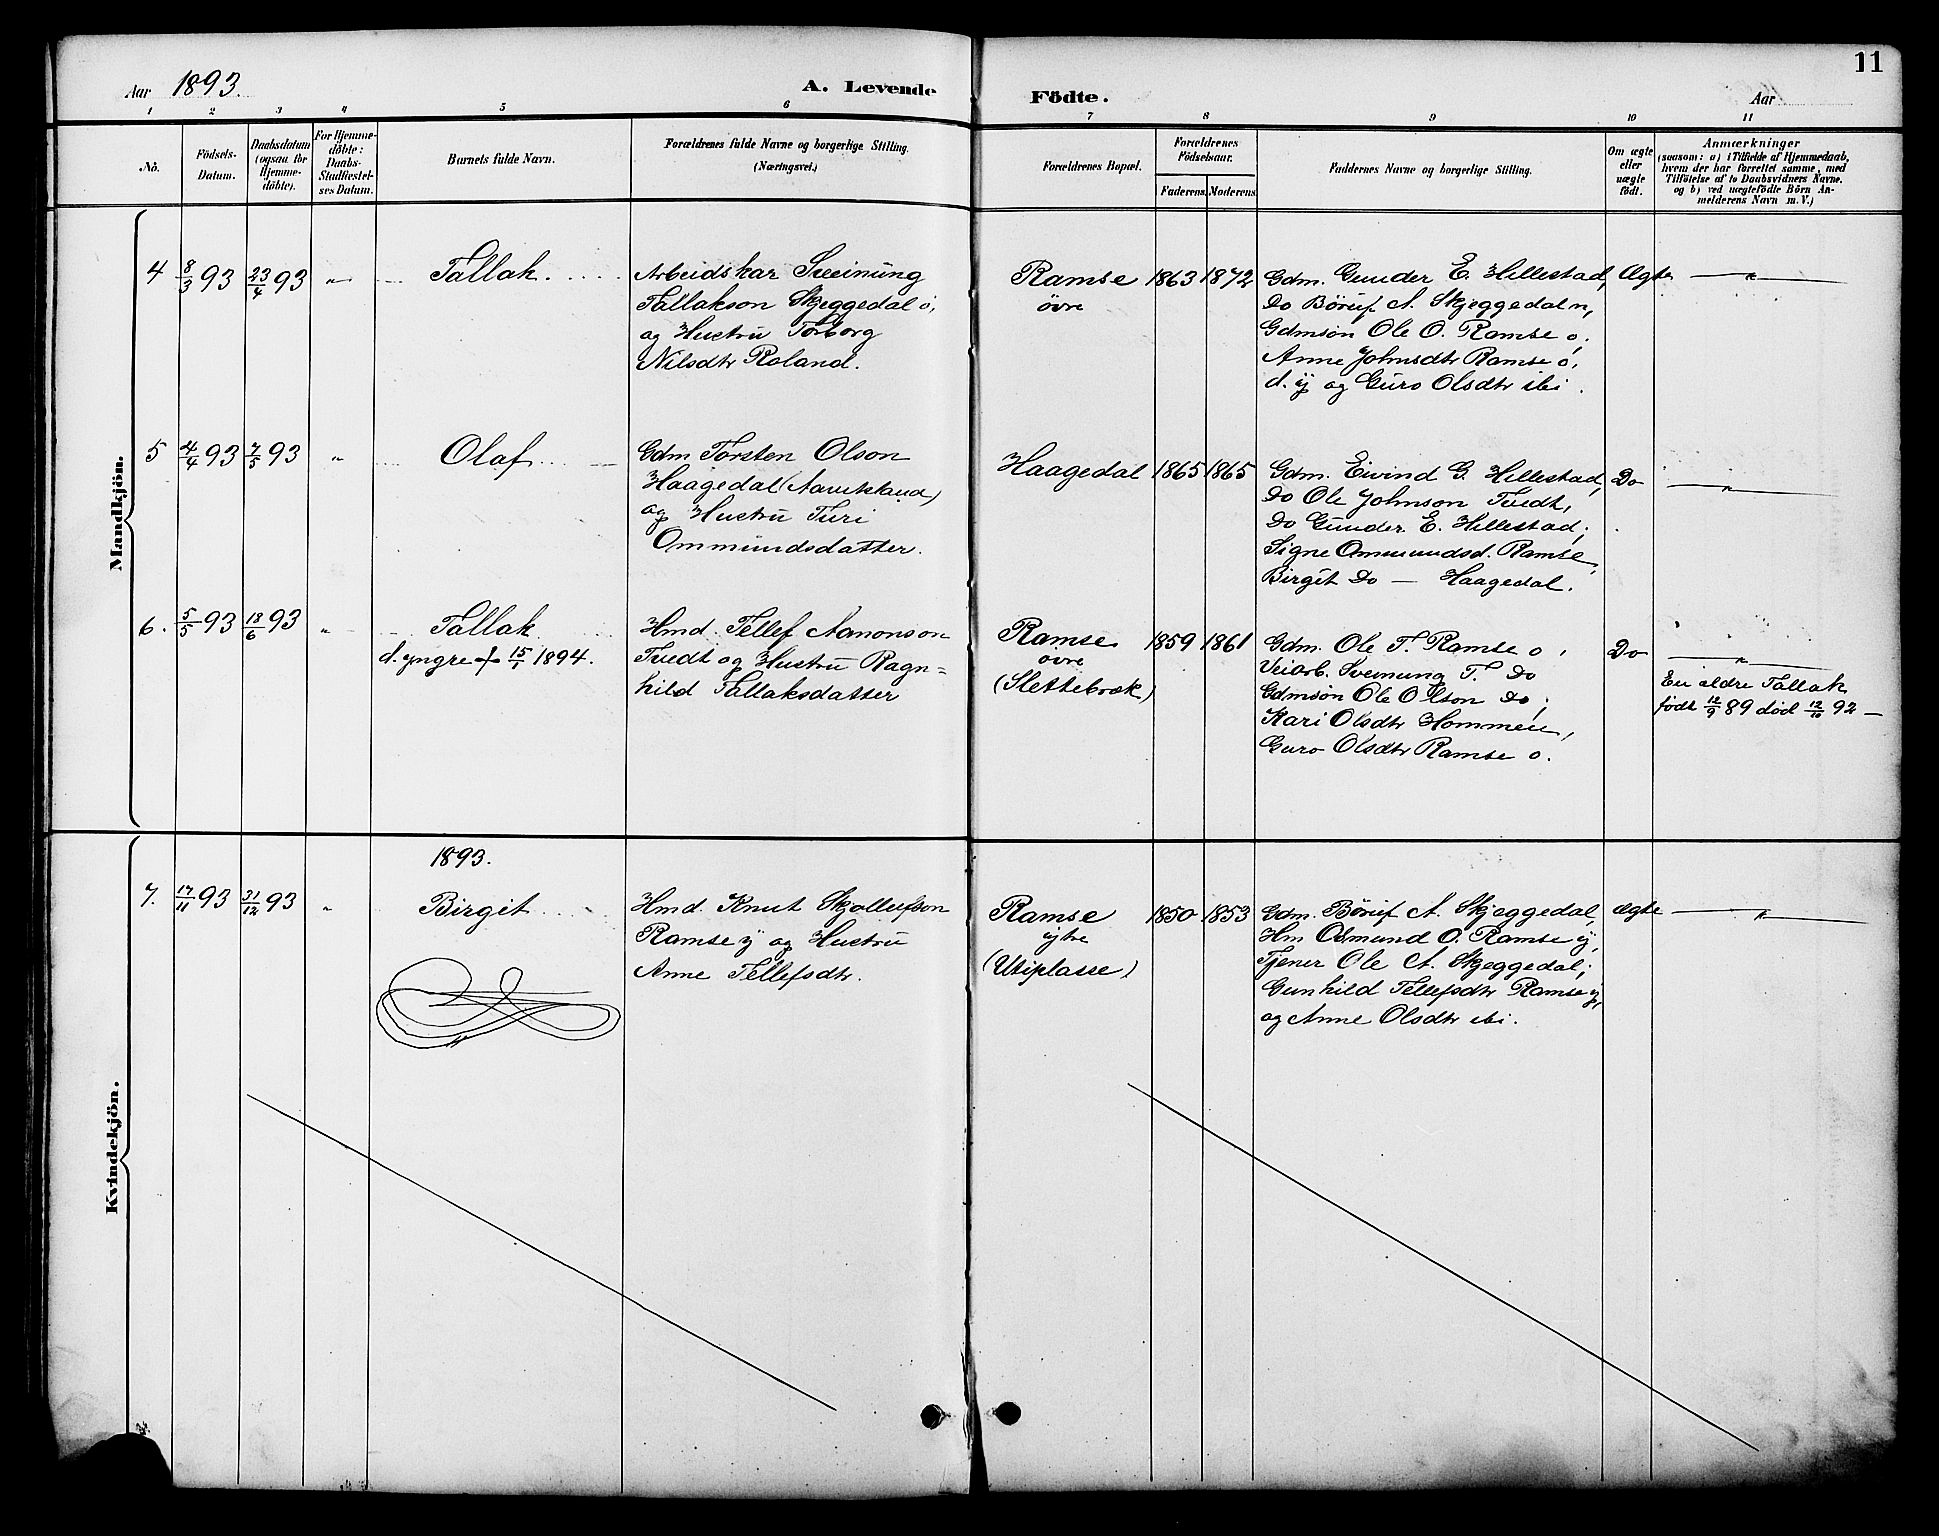 11
Aar 1893.
A. Levende Födte.
Aar
1 2 3 4 5 6 7 8 9 10 11
No.
Födsels-
Datum.
Daabsdatum
(ogsaa for
Hjemme-
døbte).
For Hjemme-
døbte:
Daabs-
Stadfæstel-
ses Datum.
Barnets fulde Navn.
Forældrenes fulde Navne og borgerlige Stilling.
(Næringsvei.)
Forældrenes Bopæl.
Forældrenes
Födselsaar.
Faderens. Moderens.
Faddernes Navne og borgerlige Stilling.
Om ægte
eller
uægte
født.
Anmærkninger
(saasom: a) i Tilfælde af Hjemmedaab,
hvem der har forrettet samme, med
Tilföielse af to Daabsvidners Navne.
og b) ved uægtefödte Börn An-
melderens Navn m. V.)
Mandkjön.
4 8/3 93 23/4 93 „ Tallak.
Arbeidskar Sveinung
Tallakson Skjeggedal ö,
og Hustru Torborg
Nilsdtr Roland.
Ramse
övre
1863 1872
Gdm. Gunder E. Hillestad,
Do Börúf A. Skjeggedal n,
Gdmsön Ole O. Ramse o,
Anne Johnsdtr Ramse ö,
d. y og Guro Olsdtr ibi.
Ægte „
5 4/4 93 7/5 93 „ Olaf
Gdm Torsten Olson
Haagedal (Navitsland)
og Hustru Turi
Ommundsdatter.
Haagedal 1865 1865
Gdm. Eivind G. Hillestad,
Do Ole Johnson Tvedt,
Do Gunder E. Hillestad;
Signe Ommundsd. Ramse,
Birgit Do — Haagedal.
Do „
6. 5/5 93 18/6 93 „ Tallak
d. yngre † 15/1 1894.
Hmd. Tellef Aanonson
Tvedt og Hustru Ragn=
hild Tallaksdatter
Ramse
övre
(Slettebræk)
1859 1861
Gdm. Ole T. Ramse o,
Veiarb. Sveinung T. Do
Gdmsön Ole Olson Do;
Kari Olsdtr Hommen,
Guro Olsdtr Ramse o.
Do „
En ældre Tallak
födt 12/9 89 död 12/10 92 —
Kvindekjön.
1893.
7. 17/11 93 31/12 93 „ Birgit
Hmd. Knut Skjollufson
Ramse y og Hustru
Anne Tellefsdtr.
Ramse
ytre
(Utiplasse)
1850 1853
Gdm. Börúf A. Skjeggedal,
Hm Osmund O. Ramse y,
Tjener Ole A. Skjeggedal;
Gunhild Tellefsdtr Ramse y,
og Anne Olsdtr ibi.
ægte „